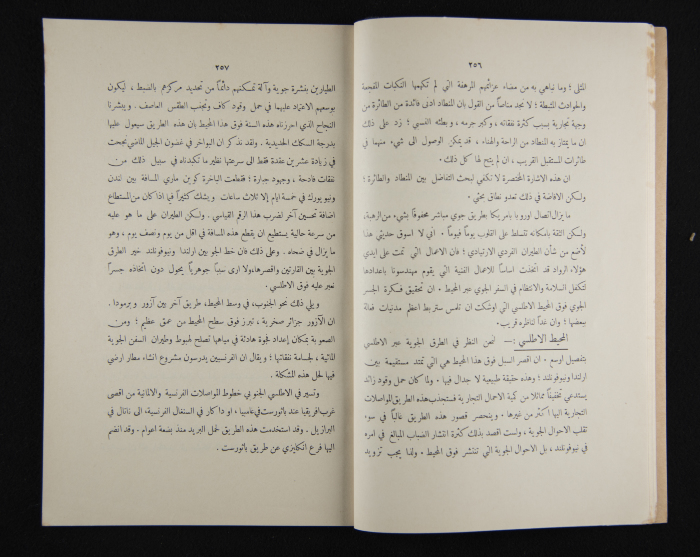 ٢٥٦
المثلى ؛ وما نباهي به من مضاء عزائمهم المرهفة التي لم تكهمها النكبات المفجعة
والحوادث المثبطة ؛ لا نجد مناصاً من القول بان المنطاد ادنى فائدة من الطائرة من
وجهة تجارية بسبب كثرة نفقاته ، وكبر جرمه ، وبطئه النسبي ؛ زد على ذلك
ما يمتاز به المنطاد من الراحة والهناء ، قد يمكن الوصول الى شيء منهما في
طائرات المستقبل القريب ، ان لم يتح لها كل ذلك .
ان هذه الاشارة المختصرة لا تكفي لبحث التفاضل بين المنطاد والطائرة ؛
ولكن الافاضة في ذلك تعدو نطاق بحثي .
ما يزال اتصال اوروبا بامريكا بطريق جوي مباشر محفوفاً بشيء من الرهبة,
ولكن الثقة بامكانه تتسلط على القلوب يوماً فيوماً . انني لا اسوق حديثي هذا
لأضع من شأن الطيران الفردي الارتيادي ؛ فان الاعمال التي تمت على ايدي
هؤلاء الرواد قد اتخذت اساساً للاعمال الفنية التي يقوم مهندسونا باعدادها
لتكفل السلامة والانتظام في السفر الجوي عبر المحيط . ان تحقيق فكرة الجسر
الجوي فوق المحيط الاطلسي التي اوشكت ان تمس ستربط اعظم مدنيات فعالة
ببعضها ؛ وان غداً لناظره قريب .
المحيط الاطلسي :— لنمعن النظر في الطرق الجوية عبر الاطلسي
بتفصيل اوسع . ان اقصر السبل فوق هذا المحيط هي التي تمتد مستقيمة بين
ارلندا ونيوفونلند ؛ وهذه حقيقة طبيعية لا جدال فيها . ولما كان حمل وقود زائد
يستدعي تخفيضاً مماثلا من كمية الاحمال التجارية فستجذب هذه الطريق المواصلات
التجارية اليها اكثر من غيرها . وينحصر قصور هذه الطريق غالباً في سوء
تقلب الاحوال الجوية ، ولست اقصد بذلك كثرة انتشار الضباب المبالغ في امره
في نيوفونلند ، بل الاحوال الجوية التي تنتشر فوق المحيط . ولذا يجب تزويد
٢٥٧
الطيارين بنشرة جوية وآلة تمكنهم دائماً من تحديد مركزهم بالضبط ، ليكون
بوسعهم الاعتماد عليهما في حمل وقود كاف وتجنب الطقس العاصف . ويبشرنا
النجاح الذي احرزناه هذه السنة فوق هذا المحيط بان هذه الطريق سيعول عليها
بدرجة السكك الحديدية . ولقد نذكر ان البواخر في غضون الجيل الماضي نجحت
في زيادة عشرين عقدة فقط الى سرعتها نظير ما تكبدناه في سبيل ذلك من
نفقات فادحة ، وجهود جبارة ؛ فقطعت الباخرة كوين ماري المسافة بين لندن
ونيويورك في خمسة ايام إلا ثلاث ساعات . ويشك كثيراً فيما اذا كان من المستطاع
اضافة تحسين آخر لضرب هذا الرقم القياسي . ولكن الطيران على ما هو عليه
من سرعة حالية يستطيع ان يقطع هذه المسافة في اقل من يوم ونصف يوم ، وهو
ما يزال في ضحاه . وعلى ذلك فان خط الجو بين ارلندا ونيوفونلند خير الطرق
الجوية بين القارتين واقصرها، ولا ارى سبباً جوهرياً يحول دون اتخاذه جسراً
نعبر عليه فوق الاطلسي .
ويلي ذلك نحو الجنوب، في وسط المحيط، طريق آخر بين آزور وبرمودا .
ان الآزور جزائر صخرية ، تبرز فوق سطح المحيط من عمق عظيم ؛ ومن
الصعوبة بمكان إعداد فجوة هادئة في مياهها تصلح لهبوط وطيران السفن الجوية
المائية ، لجسامة نفقاتها ؛ ويقال ان الفرنسيين يدرسون مشروع انشاء مطار ارضي
فيها لحل هذه المشكلة .
وتسير في الاطلسي الجنوبي خطوط المواصلات الفرنسية والالمانية من اقصى
غرب افريقيا عند باثورست في غامبيا ، او داكار في السنغال الفرنسية، الى ناتال في
البرازيل . وقد استخدمت هذه الطريق لحمل البريد منذ بضعة اعوام . وقد انضم
اليها فرع انكليزي عن طريق باثورست .